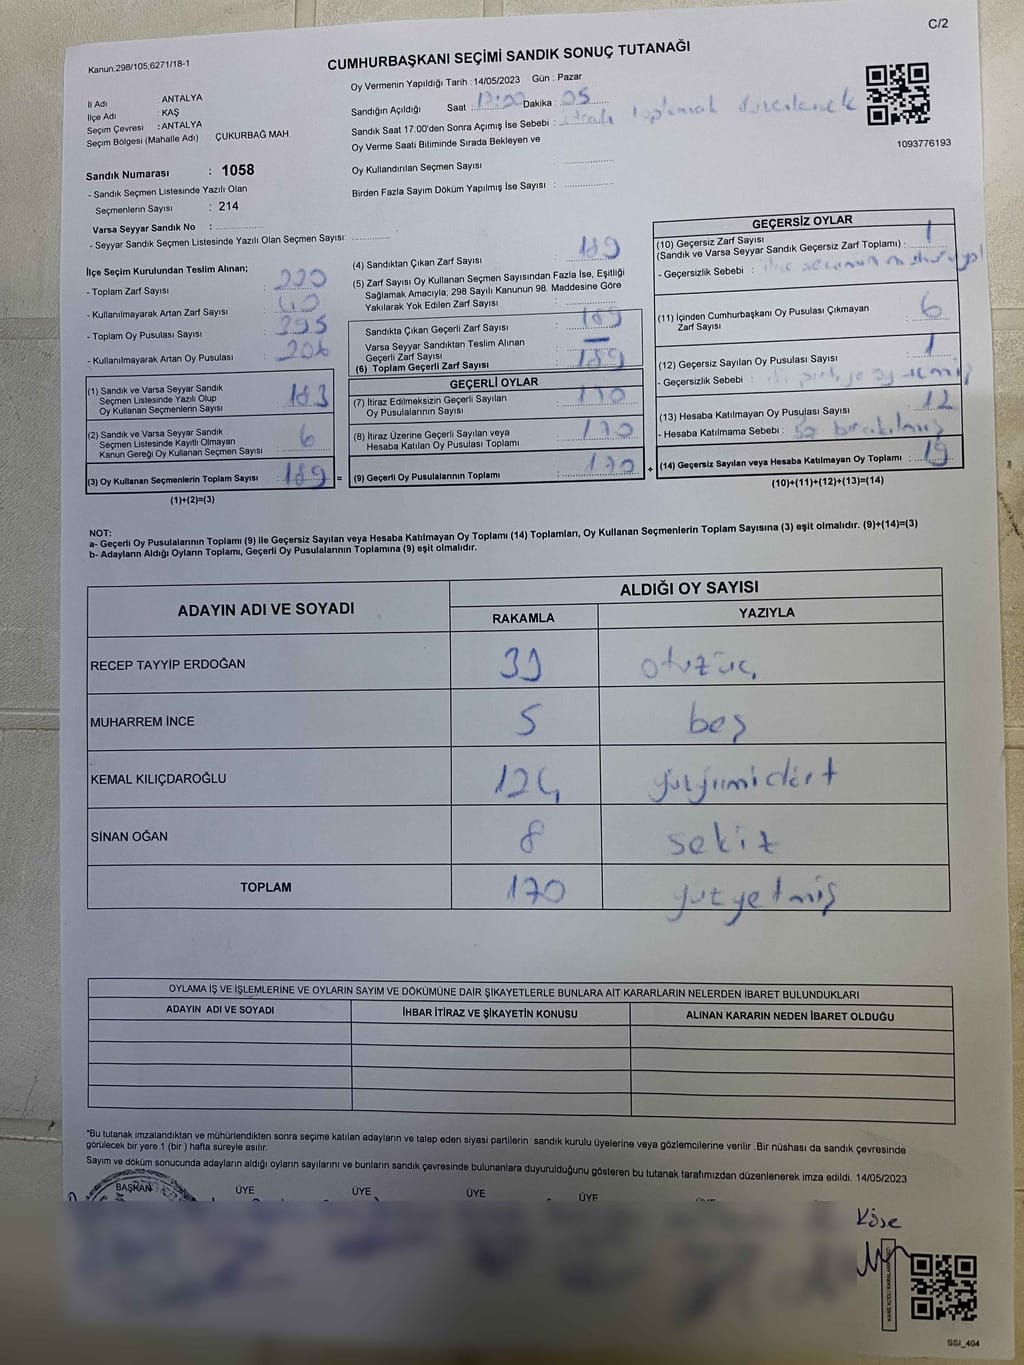 C/2
Kanun.298/105,6271/18-1
CUMHURBAŞKANI SEÇİMİ SANDIK SONUÇ TUTANAĞI
İl Adı : ANTALYA
İlçe Adı : KAŞ
Seçim Çevresi : ANTALYA
Seçim Bölgesi (Mahalle Adı) : ÇUKURBAĞ MAH.
Sandık Numarası : 1058
- Sandık Seçmen Listesinde Yazılı Olan
Seçmenlerin Sayısı : 214
Varsa Seyyar Sandık No :
- Seyyar Sandık Seçmen Listesinde Yazılı Olan Seçmen Sayısı:
Oy Vermenin Yapıldığı Tarih : 14/05/2023 Gün : Pazar
Sandığın Açıldığı Saat : 17:00 Dakika : 05
Sandık Saat 17:00'den Sonra Açımış İse Sebebi : toplamak
Oy Verme Saati Bitiminde Sırada Bekleyen ve
Oy Kullandırılan Seçmen Sayısı :
Birden Fazla Sayım Döküm Yapılmış İse Sayısı :
1093776193
İlçe Seçim Kurulundan Teslim Alınan;
- Toplam Zarf Sayısı : 220
- Kullanılmayarak Artan Zarf Sayısı :
- Toplam Oy Pusulası Sayısı : 395
- Kullanılmayarak Artan Oy Pusulası : 206
(1) Sandık ve Varsa Seyyar Sandık
Seçmen Listesinde Yazılı Olup
Oy Kullanan Seçmenlerin Sayısı : 183
(2) Sandık ve Varsa Seyyar Sandık
Seçmen Listesinde Kayıtlı Olmayan
Kanun Gereği Oy Kullanan Seçmen Sayısı : 6
(3) Oy Kullanan Seçmenlerin Toplam Sayısı : 189 =
(1)+(2)=(3)
(4) Sandıktan Çıkan Zarf Sayısı : 189
(5) Zarf Sayısı Oy Kullanan Seçmen Sayısından Fazla İse, Eşitliği
Sağlamak Amacıyla, 298 Sayılı Kanunun 98. Maddesine Göre
Yakılarak Yok Edilen Zarf Sayısı :
Sandıkta Çıkan Geçerli Zarf Sayısı : 189
Varsa Seyyar Sandıktan Teslim Alınan
Geçerli Zarf Sayısı : —
(6) Toplam Geçerli Zarf Sayısı : 189
GEÇERLİ OYLAR
(7) İtiraz Edilmeksizin Geçerli Sayılan
Oy Pusulalarının Sayısı : 170
(8) İtiraz Üzerine Geçerli Sayılan veya
Hesaba Katılan Oy Pusulası Toplamı : 170
(9) Geçerli Oy Pusulalarının Toplamı : 170 +
GEÇERSİZ OYLAR
(10) Geçersiz Zarf Sayısı
(Sandık ve Varsa Seyyar Sandık Geçersiz Zarf Toplamı) : 1
- Geçersizlik Sebebi :
(11) İçinden Cumhurbaşkanı Oy Pusulası Çıkmayan
Zarf Sayısı : 6
(12) Geçersiz Sayılan Oy Pusulası Sayısı : 1
- Geçersizlik Sebebi :
(13) Hesaba Katılmayan Oy Pusulası Sayısı : 12
- Hesaba Katılmama Sebebi : bırakılmış
(14) Geçersiz Sayılan veya Hesaba Katılmayan Oy Toplamı : 19
(10)+(11)+(12)+(13)=(14)
NOT:
a- Geçerli Oy Pusulalarının Toplamı (9) ile Geçersiz Sayılan veya Hesaba Katılmayan Oy Toplamı (14) Toplamları, Oy Kullanan Seçmenlerin Toplam Sayısına (3) eşit olmalıdır. (9)+(14)=(3)
b- Adayların Aldığı Oyların Toplamı, Geçerli Oy Pusulalarının Toplamına (9) eşit olmalıdır.
ADAYIN ADI VE SOYADI
ALDIĞI OY SAYISI
RAKAMLA YAZIYLA
RECEP TAYYİP ERDOĞAN 33 otuzüç
MUHARREM İNCE 5 beş
KEMAL KILIÇDAROĞLU 124 yüzyirmidört
SİNAN OĞAN 8 sekiz
TOPLAM 170 yüzyetmiş
OYLAMA İŞ VE İŞLEMLERİNE VE OYLARIN SAYIM VE DÖKÜMÜNE DAİR ŞİKAYETLERLE BUNLARA AİT KARARLARIN NELERDEN İBARET BULUNDUKLARI
ADAYIN ADI VE SOYADI İHBAR İTİRAZ VE ŞİKAYETİN KONUSU ALINAN KARARIN NEDEN İBARET OLDUĞU
"Bu tutanak imzalandıktan ve mühürlendikten sonra seçime katılan adayların ve talep eden siyasi partilerin sandık kurulu üyelerine veya gözlemcilerine verilir .Bir nüshası da sandık çevresinde
görülecek bir yere 1 (bir ) hafta süreyle asılır.
Sayım ve döküm sonucunda adayların aldığı oyların sayılarını ve bunların sandık çevresinde bulunanlara duyurulduğunu gösteren bu tutanak tarafımızdan düzenlenerek imza edildi. 14/05/2023
BAŞKAN ÜYE ÜYE ÜYE ÜYE
Köse
SSI_404